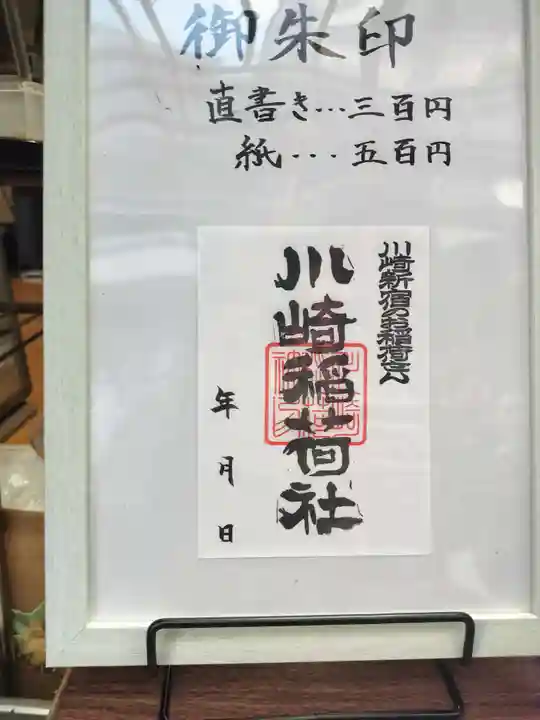 御朱印
直書き…三百円
紙・・・五百円
川崎新宿のお稲荷さん
川崎稲荷社
年月日